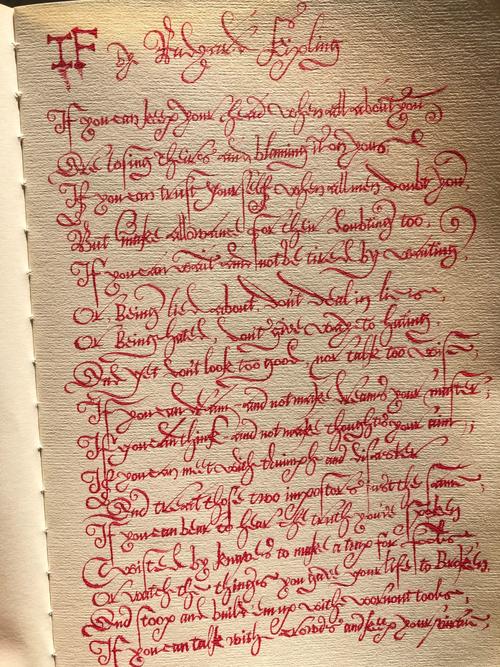 IF By Rudyard Kipling
If you can keep your head when all about you
Are losing theirs and blaming it on you,
If you can trust yourself when all men doubt you,
But make allowance for their doubting too,
If you can wait and not be tired by waiting,
Or, Being lied about, don't deal in lies,
Or Being hated, don't give way to hating,
And yet don't look too good, nor talk too wise;
If you can dream and not make dreams your master;
If you can think and not make thoughts your aim;
If you can meet with triumph and disaster
And treat those two impostors just the same;
If you can bear to hear the truth you've spoken
Twisted by knaves to make a trap for fools,
Or watch the things you gave your life to Broken,
And stoop and build 'em up with wornout tools;
If you can talk with crowds and keep your virtue,